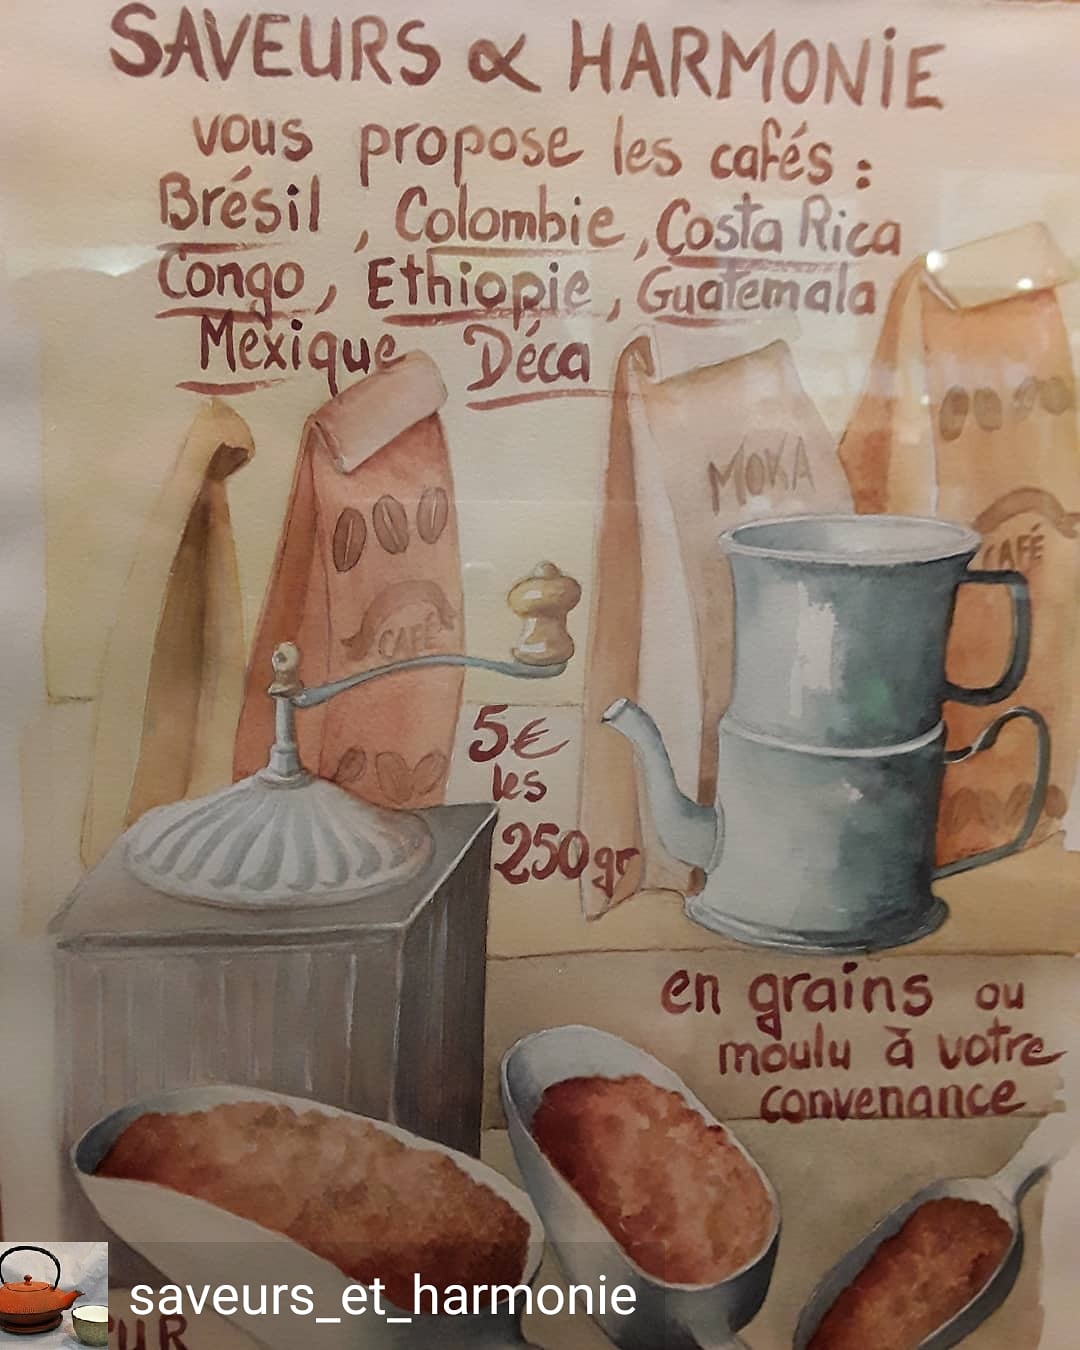 SAVEURS & HARMONIE
vous propose les cafés :
Brésil , Colombie , Costa Rica
Congo , Ethiopie , Guatemala
Mexique Déca
MOKA
CAFÉ
CAFÉ
5€
les
250gr
en grains ou
moulu à votre
convenance
saveurs_et_harmonie